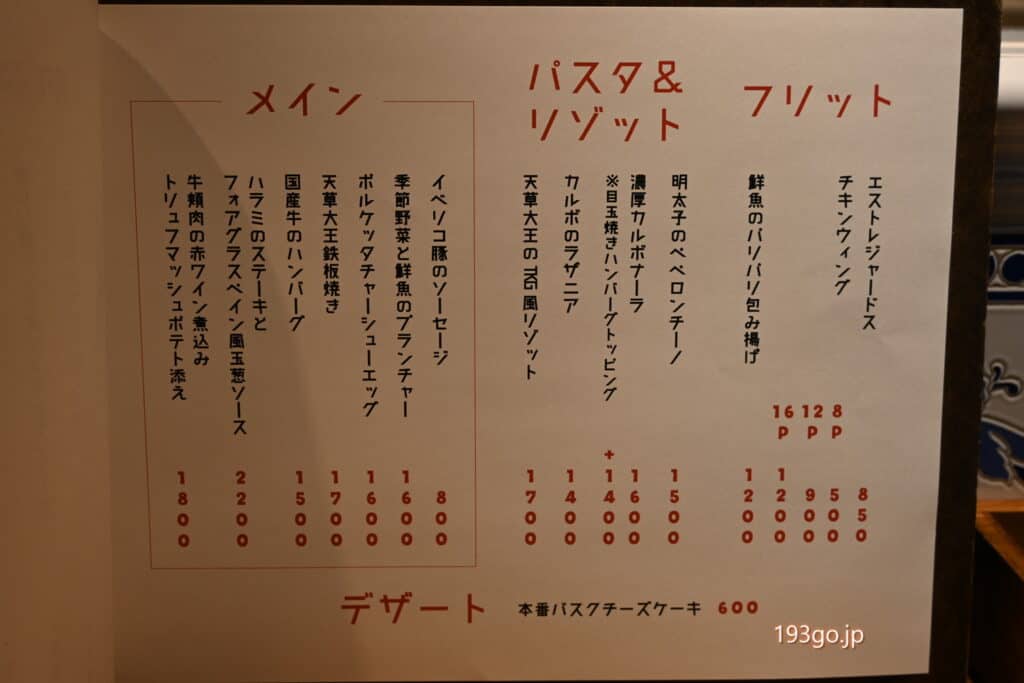 フリット
エストレジャードス
850
チキンウィング
8P 500
12P 900
16P 1200
鮮魚のパリパリ包み揚げ
1200
パスタ&
リゾット
明太子のペペロンチーノ
1500
濃厚カルボナーラ
1600
※目玉焼きハンバーグトッピング
+1400
カルボのラザニア
1400
天草大王のTKG風リゾット
1700
メイン
イベリコ豚のソーセージ
800
季節野菜と鮮魚のプランチャー
1600
ポルケッタチャーシューエッグ
1600
天草大王鉄板焼き
1700
国産牛のハンバーグ
1500
ハラミのステーキと
フォアグラスペイン風玉葱ソース
2200
牛頬肉の赤ワイン煮込み
トリュフマッシュポテト添え
1800
デザート
本番バスクチーズケーキ 600
193go.jp